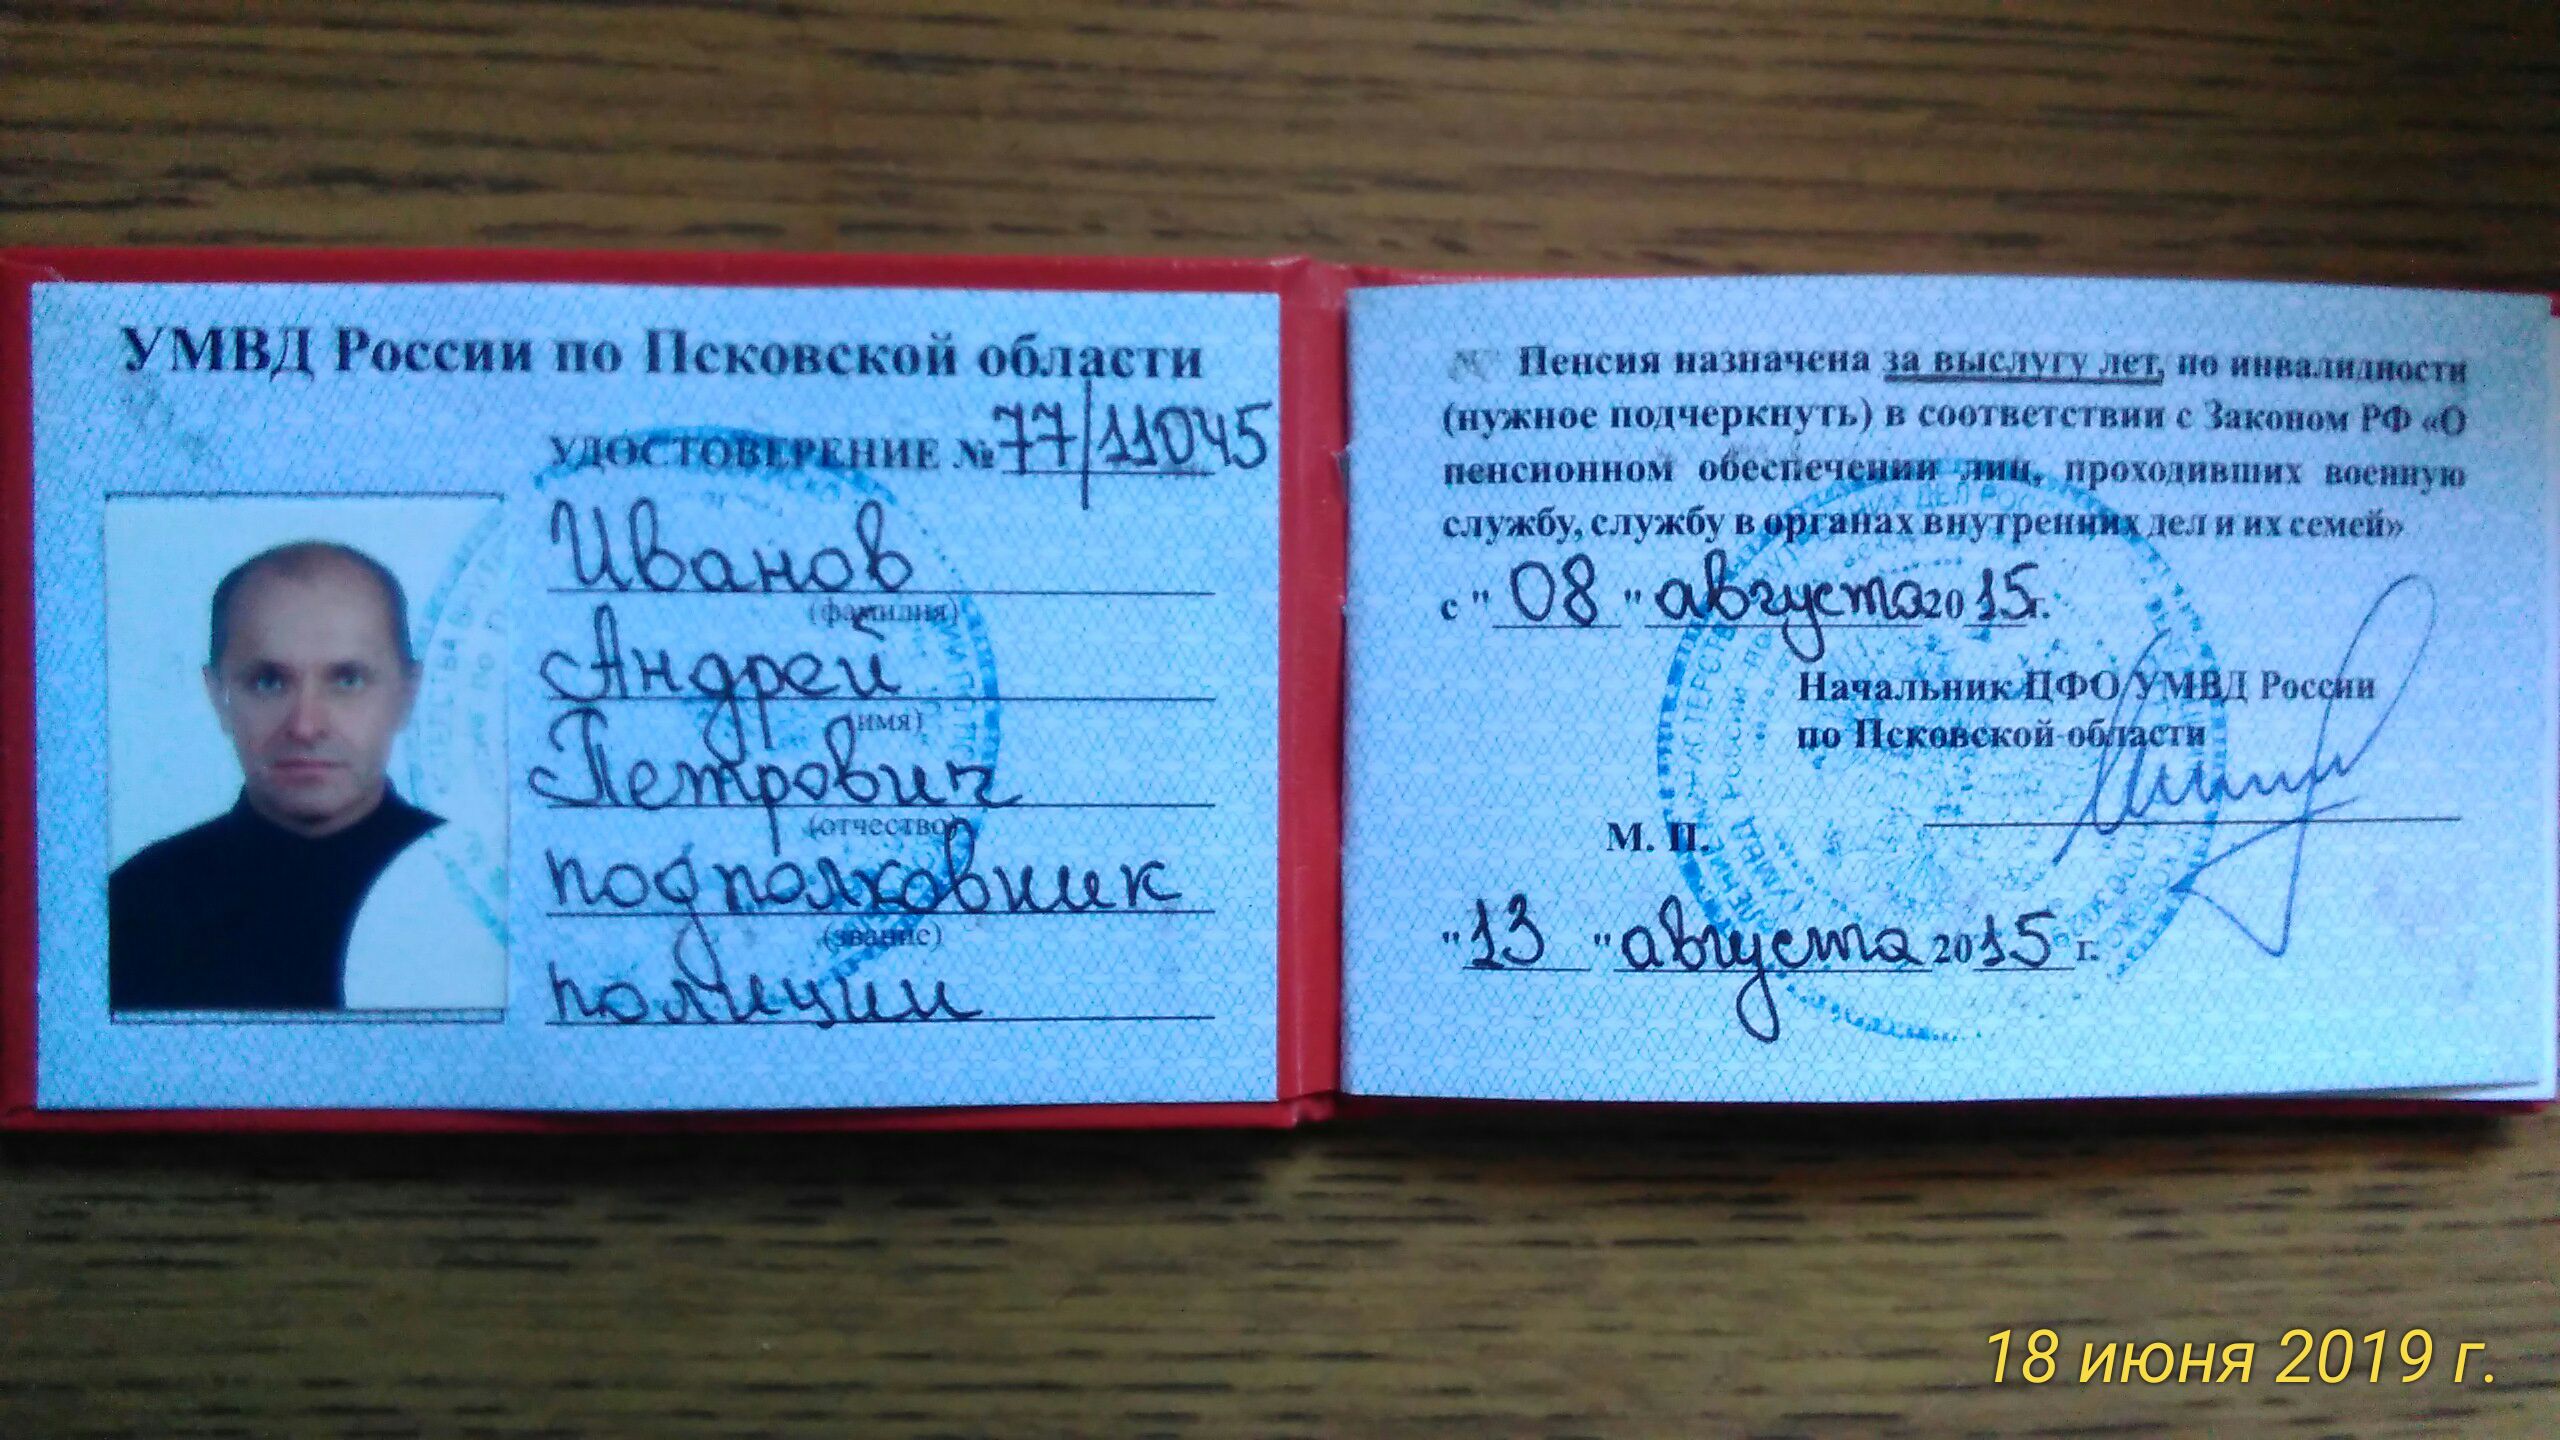 УМВД России по Псковской области
УДОСТОВЕРЕНИЕ № 77/11045
Иванов
(фамилия)
Андрей
(имя)
Петрович
(отчество)
подполковник
(звание)
полиции
Пенсия назначена за выслугу лет, по инвалидности
(нужное подчеркнуть) в соответствии с Законом РФ «О
пенсионном обеспечении лиц, проходивших военную
службу, службу в органах внутренних дел и их семей»
с "08" августа 2015г.
Начальник ЦФО УМВД России
по Псковской области
М. П.
"13" августа 2015 г.
18 июня 2019 г.